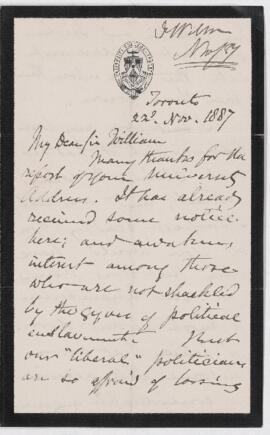 Toronto
22d Nov. 1887
My Dear Sir William
Many thanks for the
report of your University
Address. It has already
received some notice
here; and awakens
interest among those
who are not shackled
by the gyves of political
enslavement. But
our "liberal" politicians
are so afraid of loosing